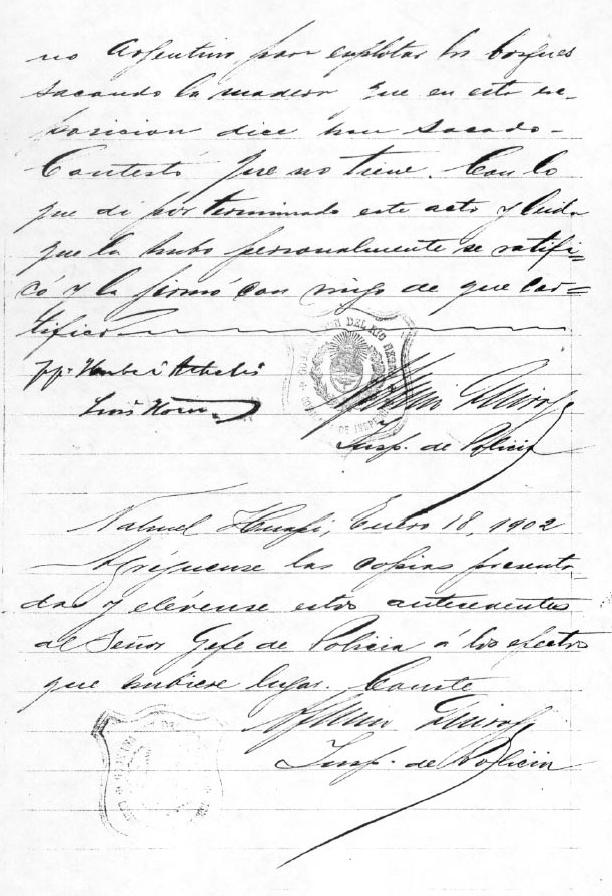 no Argentino para explotar los bosques
sacando la madera que en esta ex-
posicion dice han sacado -
Contestó que no tiene. Con lo
que di por terminado este acto y leida
que la hubo personalmente se ratifi-
có y la firmó con migo de que cer-
tifico
pp.
Insp. de Policia
Nahuel Huapi, Enero 18, 1902
Agréguense las copias presenta-
das y elévense estos antecedentes
al Señor Gefe de Policia á los efectos
que hubiere lugar. Conste
Insp. de Policia